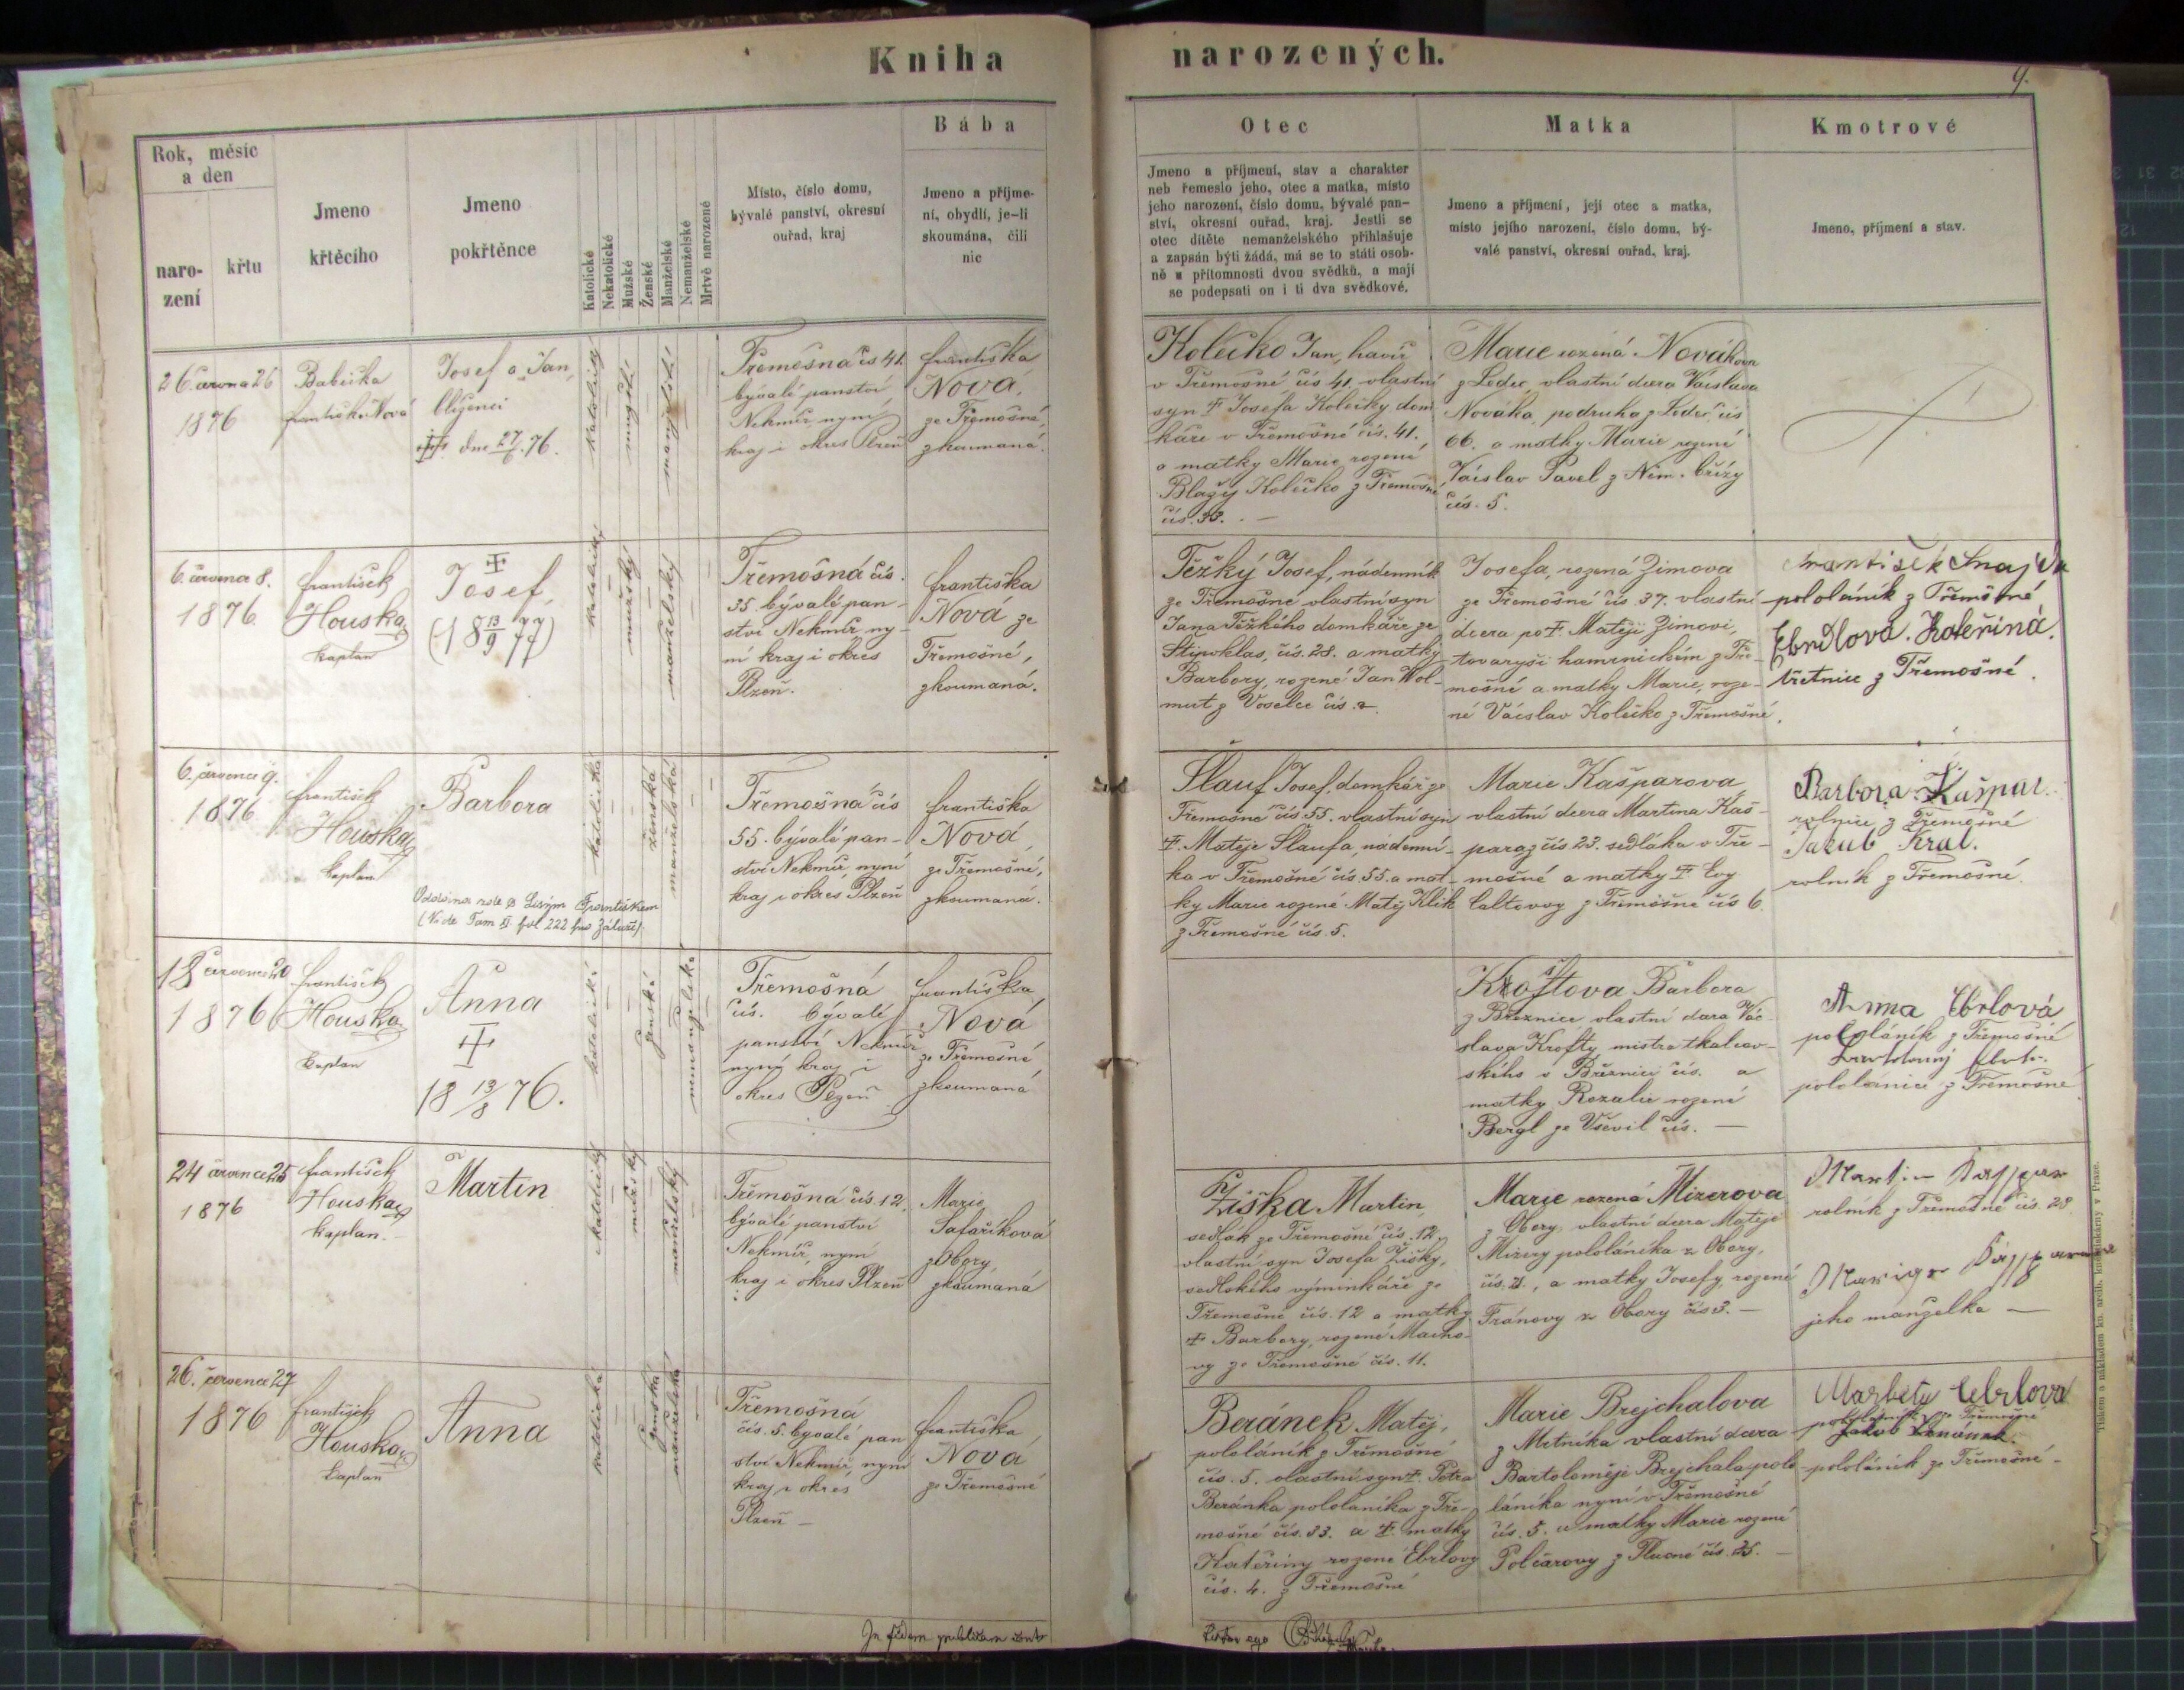 Kniha narozených.
9.
Rok, měsíc
a den
naro-
zení
křtu
Jmeno
křtěcího
Jmeno
pokřtěnce
Katolické
Nekatolické
Mužské
Ženské
Manželské
Nemanželské
Mrtvě narozené
Místo, číslo domu,
bývalé panství, okresní
ouřad, kraj
Bába
Jmeno a příjme-
ní, obydlí, je-li
skoumána, čili
nic
Otec
Jmeno a příjmení, stav a charakter
neb řemeslo jeho, otec a matka, místo
jeho narození, číslo domu, bývalé pan-
ství, okresní ouřad, kraj. Jestli se
otec dítěte nemanželského přihlašuje
a zapsán býti žádá, má se to státi osob-
ně u přítomnosti dvou svědků, a mají
se podepsati on i ti dva svědkové.
Matka
Jmeno a příjmení, její otec a matka,
místo jejího narození, číslo domu, bý-
valé panství, okresní ouřad, kraj.
Kmotrové
Jmeno, příjmení a stav.
26 června 26
1876
Babička
Františka Nová
Josef a Jan,
blíženci
dne 27/6. 76.
Třemošná čís 41.
bývalé panství
Nekmíř nyní
kraj i okres Plzeň
Františka
Nová,
ze Třemošné,
zkoumaná.
Kolečko Jan, havíř
v Třemošné čís 41. vlastní
syn † Josefa Kolečky dom
káře v Třemošné čís. 41.
a matky Marie rozené
Blažy Kolečko z Třemošné
čís. 33. —
Marie rozená Novákova
z Ledec, vlastní dcera Václava
Nováka, podruha z Ledec čís
66. a matky Marie rozené
Václav Pavel z Něm. břízy
čís. 5.
6. července 8.
1876.
František
Houska
kaplan
†
Josef,
(18 13/9 77)
katolický
mužský
manželský
Třemošná čís.
35. bývalé pan-
ství Nekmíř ny-
ní kraj i okres
Plzeň.
Františka
Nová ze
Třemošné,
zkoumaná.
Těžký Josef, nádenník
ze Třemošné vlastní syn
Jana Těžkého domkáře ze
Štipoklas, čís. 28. a matky
Barbory, rozené Jan Wol-
mut z Voselce čís. 2.
Josefa, rozená Zimova
ze Třemošné čís 37. vlastní
dcera po † Matěji Zimovi,
tovaryši hamernickém z Tře-
mošné a matky Marie, roze-
né Václav Kolečko z Třemošné.
František Šnajdr
pololáník z Třemošné
Ebrdlová. Kateřina.
z Třemošné.
6. července 9.
1876
František
Houska
kaplan
Barbora
katolická
ženská
manželská
Třemošná čís
55. bývalé pan-
ství Nekmíř, nyní
kraj i okres Plzeň
Františka
Nová
ze Třemošné,
zkoumaná.
Šlauf Josef, domkář ze
Třemošné čís 55. vlastní syn
†. Matěje Šlaufa, nádenní-
ka v Třemošné čís. 55. a mat-
ky Marie rozené Matěj Klik
z Třemošné čís. 5.
Marie Kašparová,
vlastní dcera Martina Kaš-
para z čís 23. sedláka v Tře-
mošné a matky † Evy
Caltovoy z Třemošné čís 6.
Barbora Kašpar.
rolnice z Třemošné
Jakub Král.
rolník z Třemošné.
18 července 20
1876
František
Houska
kaplan
Anna
†
18 13/8 76.
Třemošná
čís. bývalé
panství Nekmíř
nyní kraj i
okres Plzeň
Františka
Nová
ze Třemošné
zkoumaná
Kroftova Barbora
z Březnice, vlastní dcera Vác-
slava Krofty, mistra tkalcov-
ského v Březnici čís. a
matky Rozalie rozené
Bergl ze Vševil čís. —
Anna Ebrlová
pololáník z Třemošné
pololánice z Třemošné
24 července 25
1876
František
Houska
kaplan.
Martin
katolický
mužský
manželský
Třemošná čís. 12.
bývalé panství
Nekmíř, nyní
kraj i okres Plzeň
Marie
Šafaříková
z Obory,
zkoumaná
Žiška Martin,
sedlák ze Třemošné čís. 12,
vlastní syn Josefa Žišky,
sedlského výminkáře ze
Třemošné čís. 12 a matky
† Barbory, rozené Macho-
vy ze Třemošné čís. 11.
Marie rozená Mizerova
z Obory, vlastní dcera Matěje
Mizery pololáníka z Obory,
čís. 21., a matky Josefy, rozené
Fránovy z Obory čís 3. —
Martin Kasspar
rolník z Třemošné čís. 28.
jeho manželka —
26. července 27
1876
František
Houska
kaplan
Anna
katolická
ženská
manželská
Třemošná
čís. 5. bývalé pan
ství Nekmíř, nyní
kraj i okres
Plzeň —
Františka
Nová
ze Třemošné
Beránek Matěj,
pololáník z Třemošné
čís. 5. vlastní syn †. Petra
Beránka pololáníka z Tře-
mošné čís. 33. a †. matky
Kateřiny rozené Ebrlovy
čís. 4. z Třemošné
Marie Brejchalova
z Mrtníka vlastní dcera
Bartoloměje Brejchala polo
láníka nyní v Třemošné
čís. 5. a matky Marie rozené
Polcarovy z Tlucné čís. 25. —
Markéta Ebrlova
Jakub Beránek.
pololáník ze Třemošné -